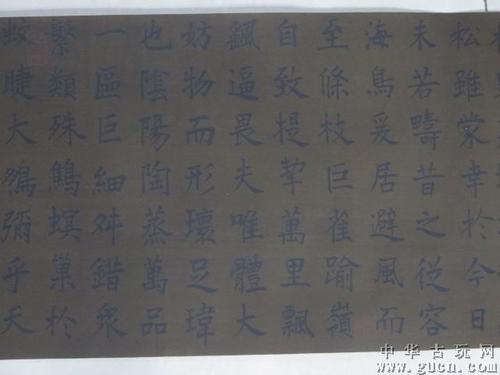 松雖蒙幸於今日
未若疇昔之從容
海鳥爰居避風而
至條枝巨雀踰嶺
自致提挈萬里飄
颻逼畏夫唯體大
妨物而形瓌足瑋
也陰陽陶蒸萬品
一區巨細舛錯衆
繁類殊鷦螟巢於
蚊睫大鵬彌乎天
中华古玩网
www.gucn.com